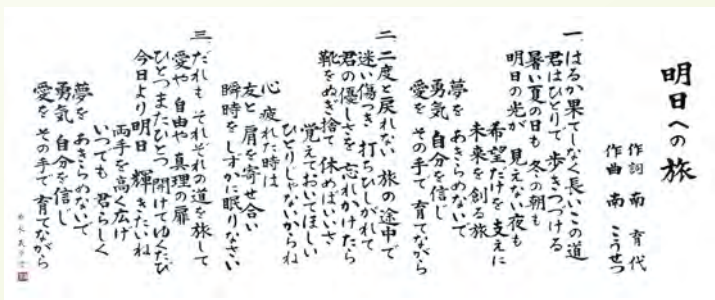 明日への旅
作詞 南 育代
作曲 南 こうせつ
一 はるか果てしなく長いこの道
君はひとりで 歩きつづける
暑い夏の日も 冬の朝も
明日の光が 見えない夜も
希望だけを 支えに
未来を創る旅
夢を あきらめないで
勇気 自分を信じ
愛を その手で 育てながら
二 二度と戻れない 旅の途中で
迷い傷つき 打ちひしがれて
君の優しさを 忘れかけたら
靴をぬぎ捨て 休めばいいさ
覚えておいてほしい
ひとりじゃないからね
心 疲れた時は
友と 肩を寄せ合い
瞬時を しずかに眠りなさい
三 だれも それぞれの道を旅して
愛や 自由や 真理の扉
ひとつまたひとつ 開けてゆくたび
今日より明日 輝きたいね
両手を高く広げ
いつでも 君らしく
夢を あきらめないで
勇気 自分を信じ
愛を その手で 育てながら